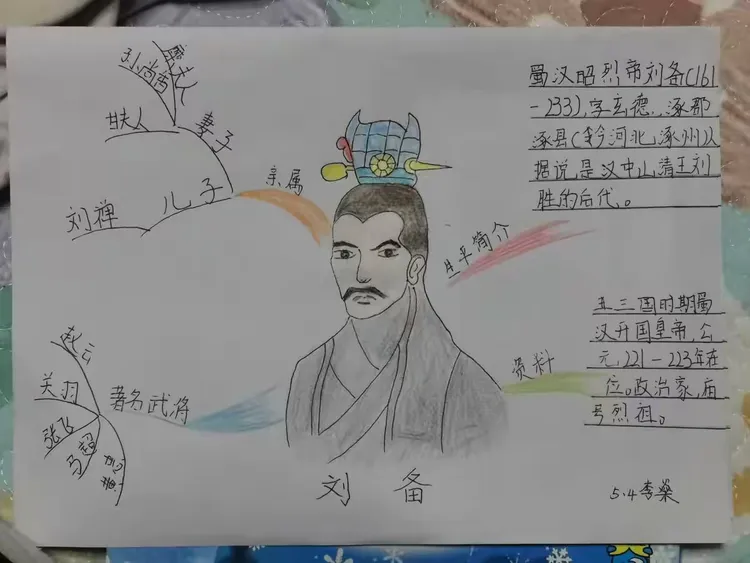 亲属
妻子
孙尚香
甘夫人
儿子
刘禅
生平简介
蜀汉昭烈帝刘备(161
-233),字玄德,涿郡
涿县(今河北,涿州)人
据说,是汉中山,清王刘
胜的后代,。
资料
五三国时期蜀
汉开国皇帝,公
元,221-223年在
位。政治家,庙
号烈祖。
著名武将
赵云
关羽
张飞
马超
黄忠
刘备
5.4李燊